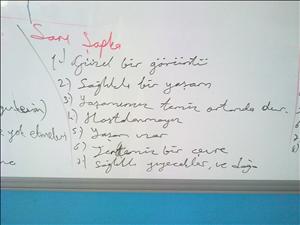 Sarı Şapka
1) Güzel bir görüntü
2) Sağlıklı bir yaşam
3) Yaşamımız temiz ortamda olur.
4) Hastalanmayız
5) Yaşam uzar
6) Tertemiz bir çevre
7) Sağlıklı yiyecekler, ve doğa